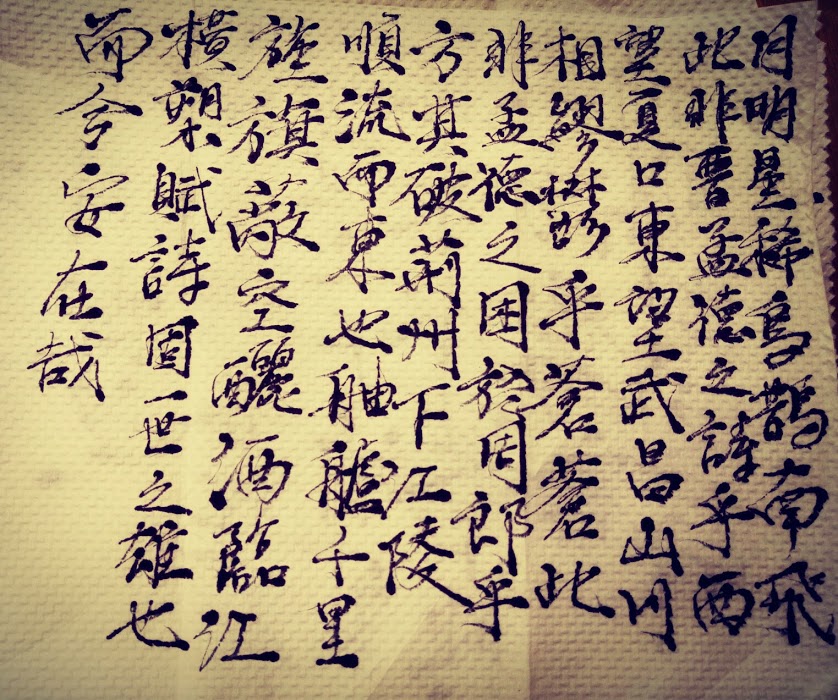 月明星稀烏鵲南飛
此非曹孟德之詩乎西
望夏口東望武昌山川
相繆鬱乎蒼蒼此
非孟德之困於周郎乎
方其破荊州下江陵
順流而東也舳艫千里
旌旗蔽空釃酒臨江
橫槊賦詩固一世之雄也
而今安在哉